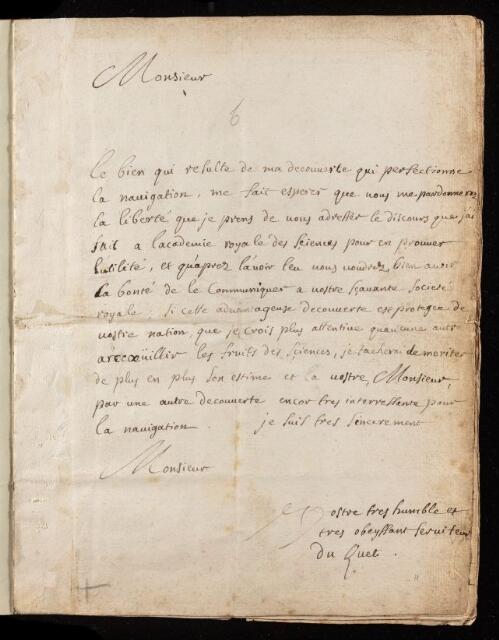 Monsieur
6
le bien qui resulte de ma decouverte qui perfectionne
la navigation, me fait esperer que vous me pardonnerez
la liberté que je prens de vous adresser le discours que j'ai
fait a lacademie royale des sciences pour en prouver
lutilité, et qu'aprez l'avoir leu vous voudrez bien avoir
la bonté de le Communiquer a vostre sçavante Societé
royale; si cette advantageuse decouverte est protegée de
vostre nation, que je crois plus attentive qu'aucune autr
a recœüillir les fruits des sciences, je tacherai de meriter
de plus en plus son estime et la vostre, Monsieur,
par une autre decouverte encor tres interressante pour
la navigation. je suis tres sincerement
Monsieur
Vostre tres humble et
tres obeyssant serviteur
du Quet.